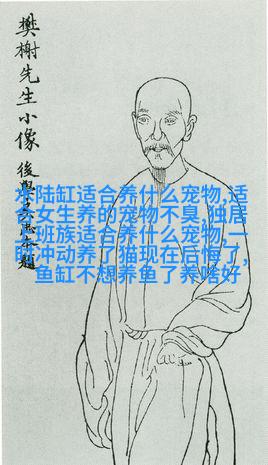 樊榭先生小像
後學
水陆缸适合养什么宠物,适
合女生养的宠物不臭,独居
上班族适合养什么宠物,一
时冲动养了猫现在后悔了,
鱼缸不想养鱼了养啥好